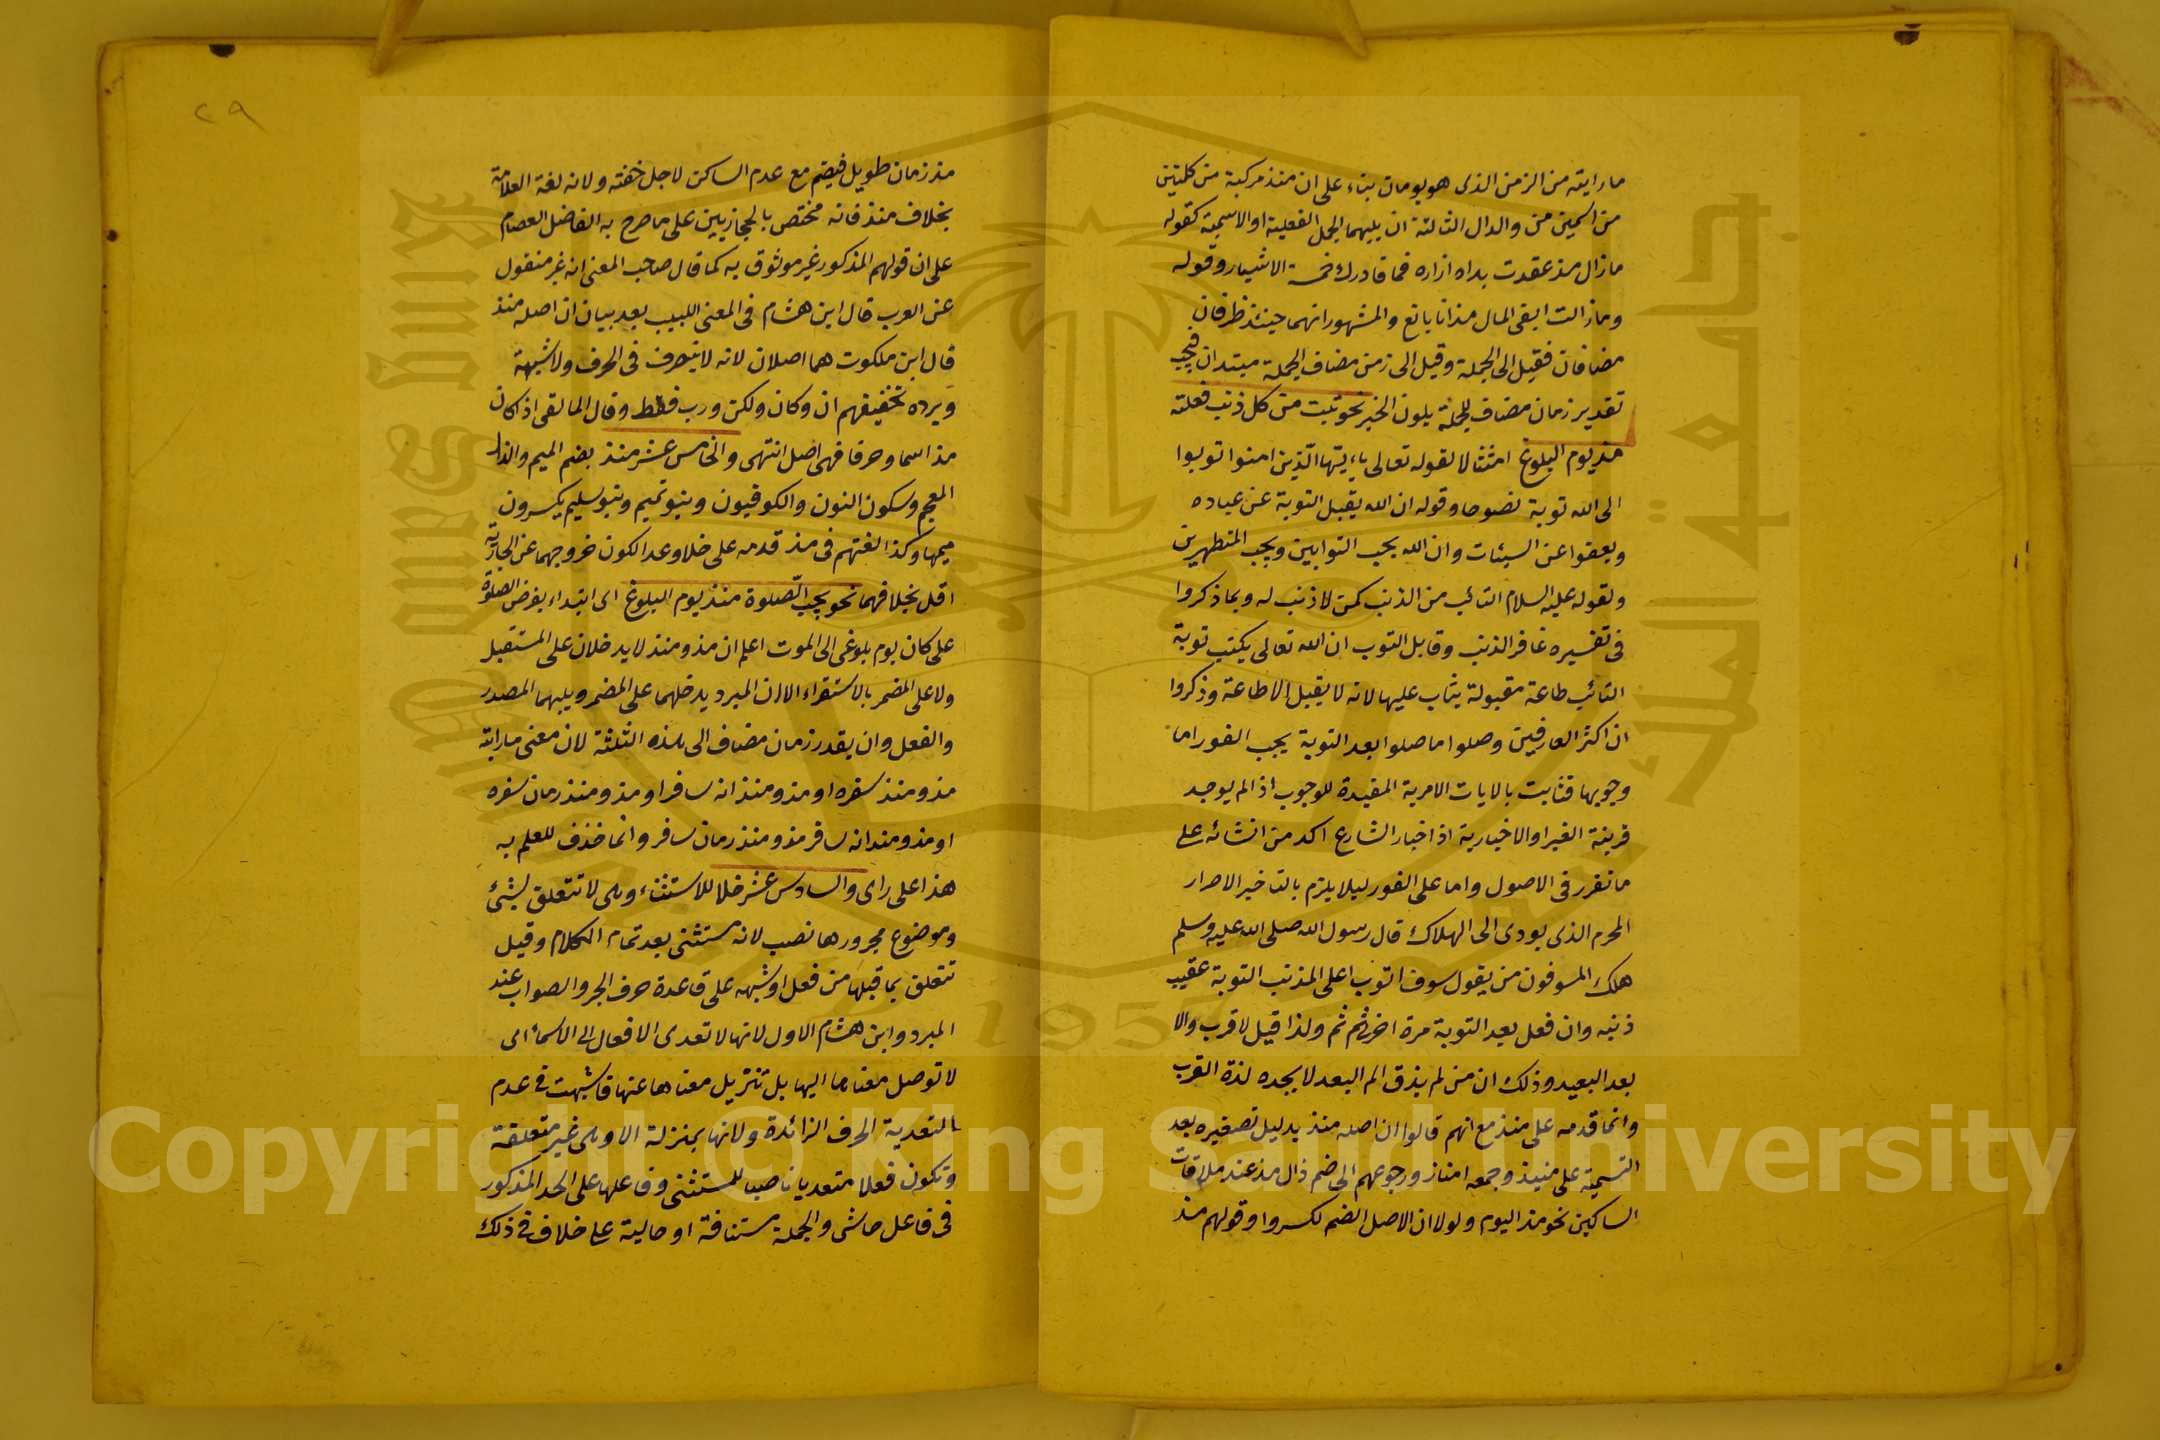 ما رايته من الزمن الذى هو يومان بناء على ان منذ مركبة من كلمتين
من اسمين من والدال الثالثة ان يليهما الجمل الفعلية او الاسمية كقوله
ما زال مذ عقدت يداه ازاره فما فادرك خمسة الاشبار وقوله
وما زالت ابقى المال مذ انا يافع والمشهور انهما حينئذ ظرفان
مضافان فقيل الى الجملة وقيل الى زمن مضاف للجملة مبتدان فيجب
تقدير زمان مضاف للجملة يكون الخبر نحو تبت من كل ذنب فعلته
مذ يوم البلوغ امتثالا لقوله تعالى يا ايتها الذين امنوا توبوا
الى الله توبة نصوحا وقوله ان الله يقبل التوبة عن عباده
ويعفوا عن السيئات وان الله يحب التوابين ويحب المتطهرين
ولقوله عليه السلام التائب من الذنب كمن لا ذنب له وبما ذكروا
فى تفسيره غافر الذنب وقابل التوب ان الله تعالى يكتب توبة
التائب طاعة مقبولة يثاب عليها لانه لا يقبل الا طاعة وذكروا
ان اكثر العارفين وصلوا ما صلوا بعد التوبة يجب الفور اما
وجوبها فثابت بالايات الامرية المقيدة للوجوب اذا لم يوجد
قرينة الغير او الاخبارية اذ اخبار الشارع اكد من انشائه على
ما تقرر فى الاصول واما على الفور ليلا يلزم بالتاخير الاصرار
المحرم الذى يودى الى الهلاك قال رسول الله صلى الله عليه وسلم
هلك المسوفون من يقول سوف اتوب اعلى المذنب التوبة عقيب
ذنبه وان فعل بعد التوبة مرة اخرى ثم ثم ولذا قيل لا قرب والا
بعد البعيد وذلك ان من لم يذق الم البعد لا يجده لذة القرب
وانما قدمه على منذ مع انهم قالوا ان اصله منذ بدليل تصغيره بعد
التسمية على منيذ وجمعه امناذ ورجوعهم الى ضم ذال مذ عند ملاقات
الساكين نحو مذ اليوم ولولا ان الاصل الضم لكسروا وقولهم مذ
٢٩
مذ زمان طويل فيضم مع عدم الساكن لاجل خفته ولانه لغة العلامة
بخلاف منذ فانه مختص بالحجازيين على ما صرح به الفاضل العصام
على ان قولهم المذكور غير موثوق به كما قال صاحب المغنى انه غير منقول
عن العرب قال ابن هشام فى المغنى اللبيب بعد بيان ان اصله منذ
قال ابن ملكوت هما اصلان لانه لا تيصرف فى الحرف ولا شبهه
ويرده تخفيفهم ان وكان ولكن ورب فقط وقال المالقى اذ كان
مذ اسما وحرفا فهى اصل انتهى والخامس عشر منذ بضم الميم والذال
المعجم وسكون النون والكوفيون وبنو تميم وبنو سليم يكسرون
ميمها وكذا لغتهم فى مذ قدمه على خلا وعدا لكون خروجهما عن الجارية
اقل بخلافهما نحو يجب الصلوة منذ يوم البلوغ اى ابتداء بفرض الصلوة
على كان يوم بلوغى الى الموت اعلم ان مذ ومنذ لا يدخلان على المستقبل
ولا على المضمر بالاستقراء الا ان المبرد يدخلهما على المضمر ويليهما المصدر
والفعل وان يقدر زمان مضاف الى هذه الثلثة لان معنى ما رايته
مذ ومنذ سفره او مذ ومنذ انه سافر او مذ ومنذ زمان سفره
او مذ ومنذ انه سافر مذ ومنذ زمان سافر وانما حذف للعلم به
هذا على راى والسادس عشر خلا للاستثناء وهى لا تتعلق بشئ
وموضوع مجرورها نصب لانه مستثنى بعد تمام الكلام وقيل
تتعلق بما قبلها من فعل او شبهه على قاعدة حرف الجر والصواب عند
المبرد وابن هشام الاول لانها لا تعدى الافعال الى الاسماء اى
لا توصل معناها اليها بل تنزيل معناها عنها فاشبهت فى عدم
التعدية الحرف الزائدة ولانها بمنزلة الا وهى غير متعلقة
وتكون فعلا متعديا ناصبا للمستثنى وفاعلها على الحد المذكور
فى فاعل حاشى والجملة مستانفة او حالية على خلاف فى ذلك
جامعة الملك سعود
King Saud University
1957
Copyright © King Saud University